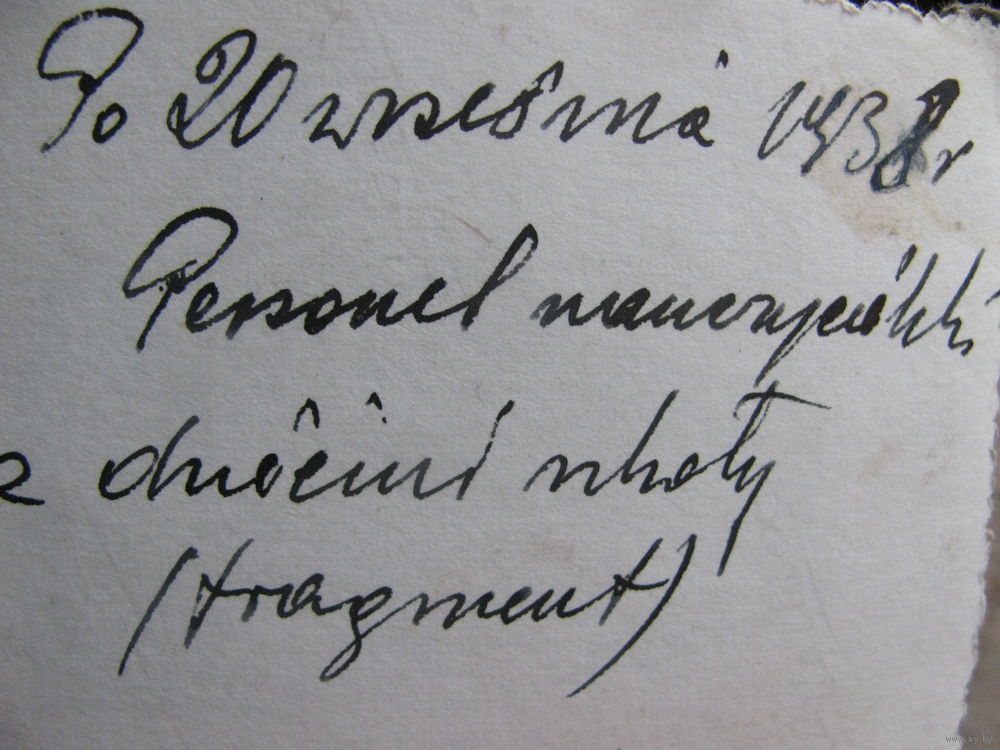 Po 20 września 1938 r
Personel nauczycielski
z dziećmi szkoły
(fragment)
www.ay.by